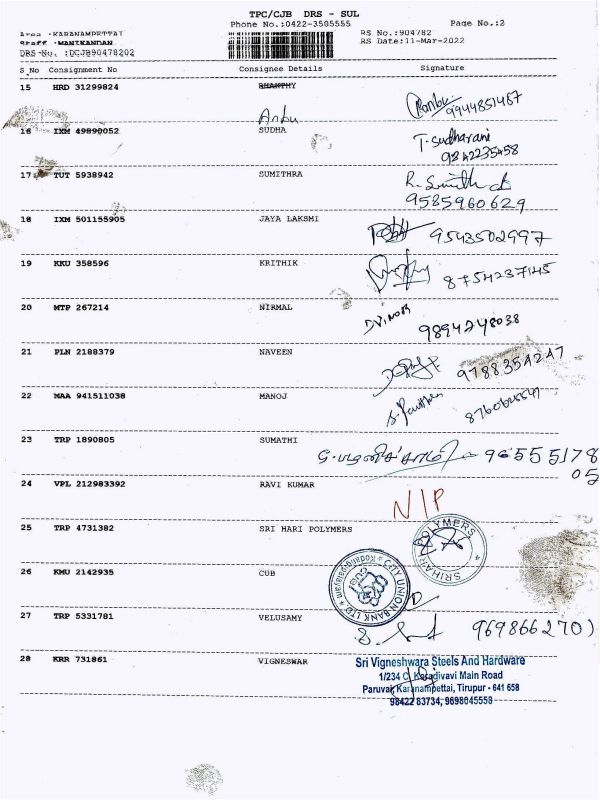 TPC/CJB DRS - SUL
Phone No.:0422-3505555 Page No.:2
Area :KARANAMPETTAI RS No.:904782
Staff :MANIKANDAN RS Date:11-Mar-2022
DRS-No. :DCJB90478202
S_No Consignment No Consignee Details Signature
15 HRD 31299824 BHAKTHY
Anbu 9944851467
16 IXM 49890052 SUDHA T. Sudharani
9842235458
17 TUT 5938942 SUMITHRA
9585960629
18 IXM 501155905 JAYA LAKSMI 9543502997
19 KKU 358596 KRITHIK 8754237145
20 MTP 267214 NIRMAL 9894248038
21 PLN 2188379 NAVEEN 9788354247
22 MAA 941511038 MANOJ
23 TRP 1890805 SUMATHI 96555178
05
24 VPL 212983392 RAVI KUMAR N/P
25 TRP 4731382 SRI HARI POLYMERS SRIHARI POLYMERS
26 KMU 2142935 CUB CITY UNION BANK LTD
27 TRP 5331781 VELUSAMY 9698662701
28 KRR 731861 VIGNESWAR Sri Vigneshwara Steels And Hardware
1/234 C, Karadivavi Main Road
Paruvai Karanampettai, Tirupur - 641 658
98422 83734, 9698045558